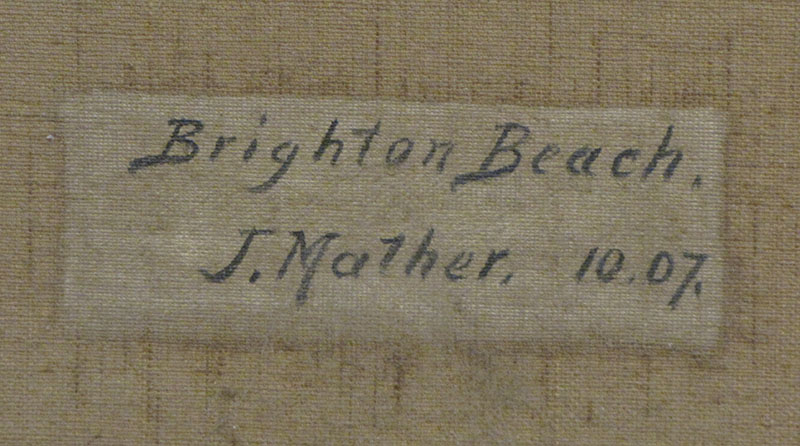 Brighton Beach.
J. Mather. 10.07.